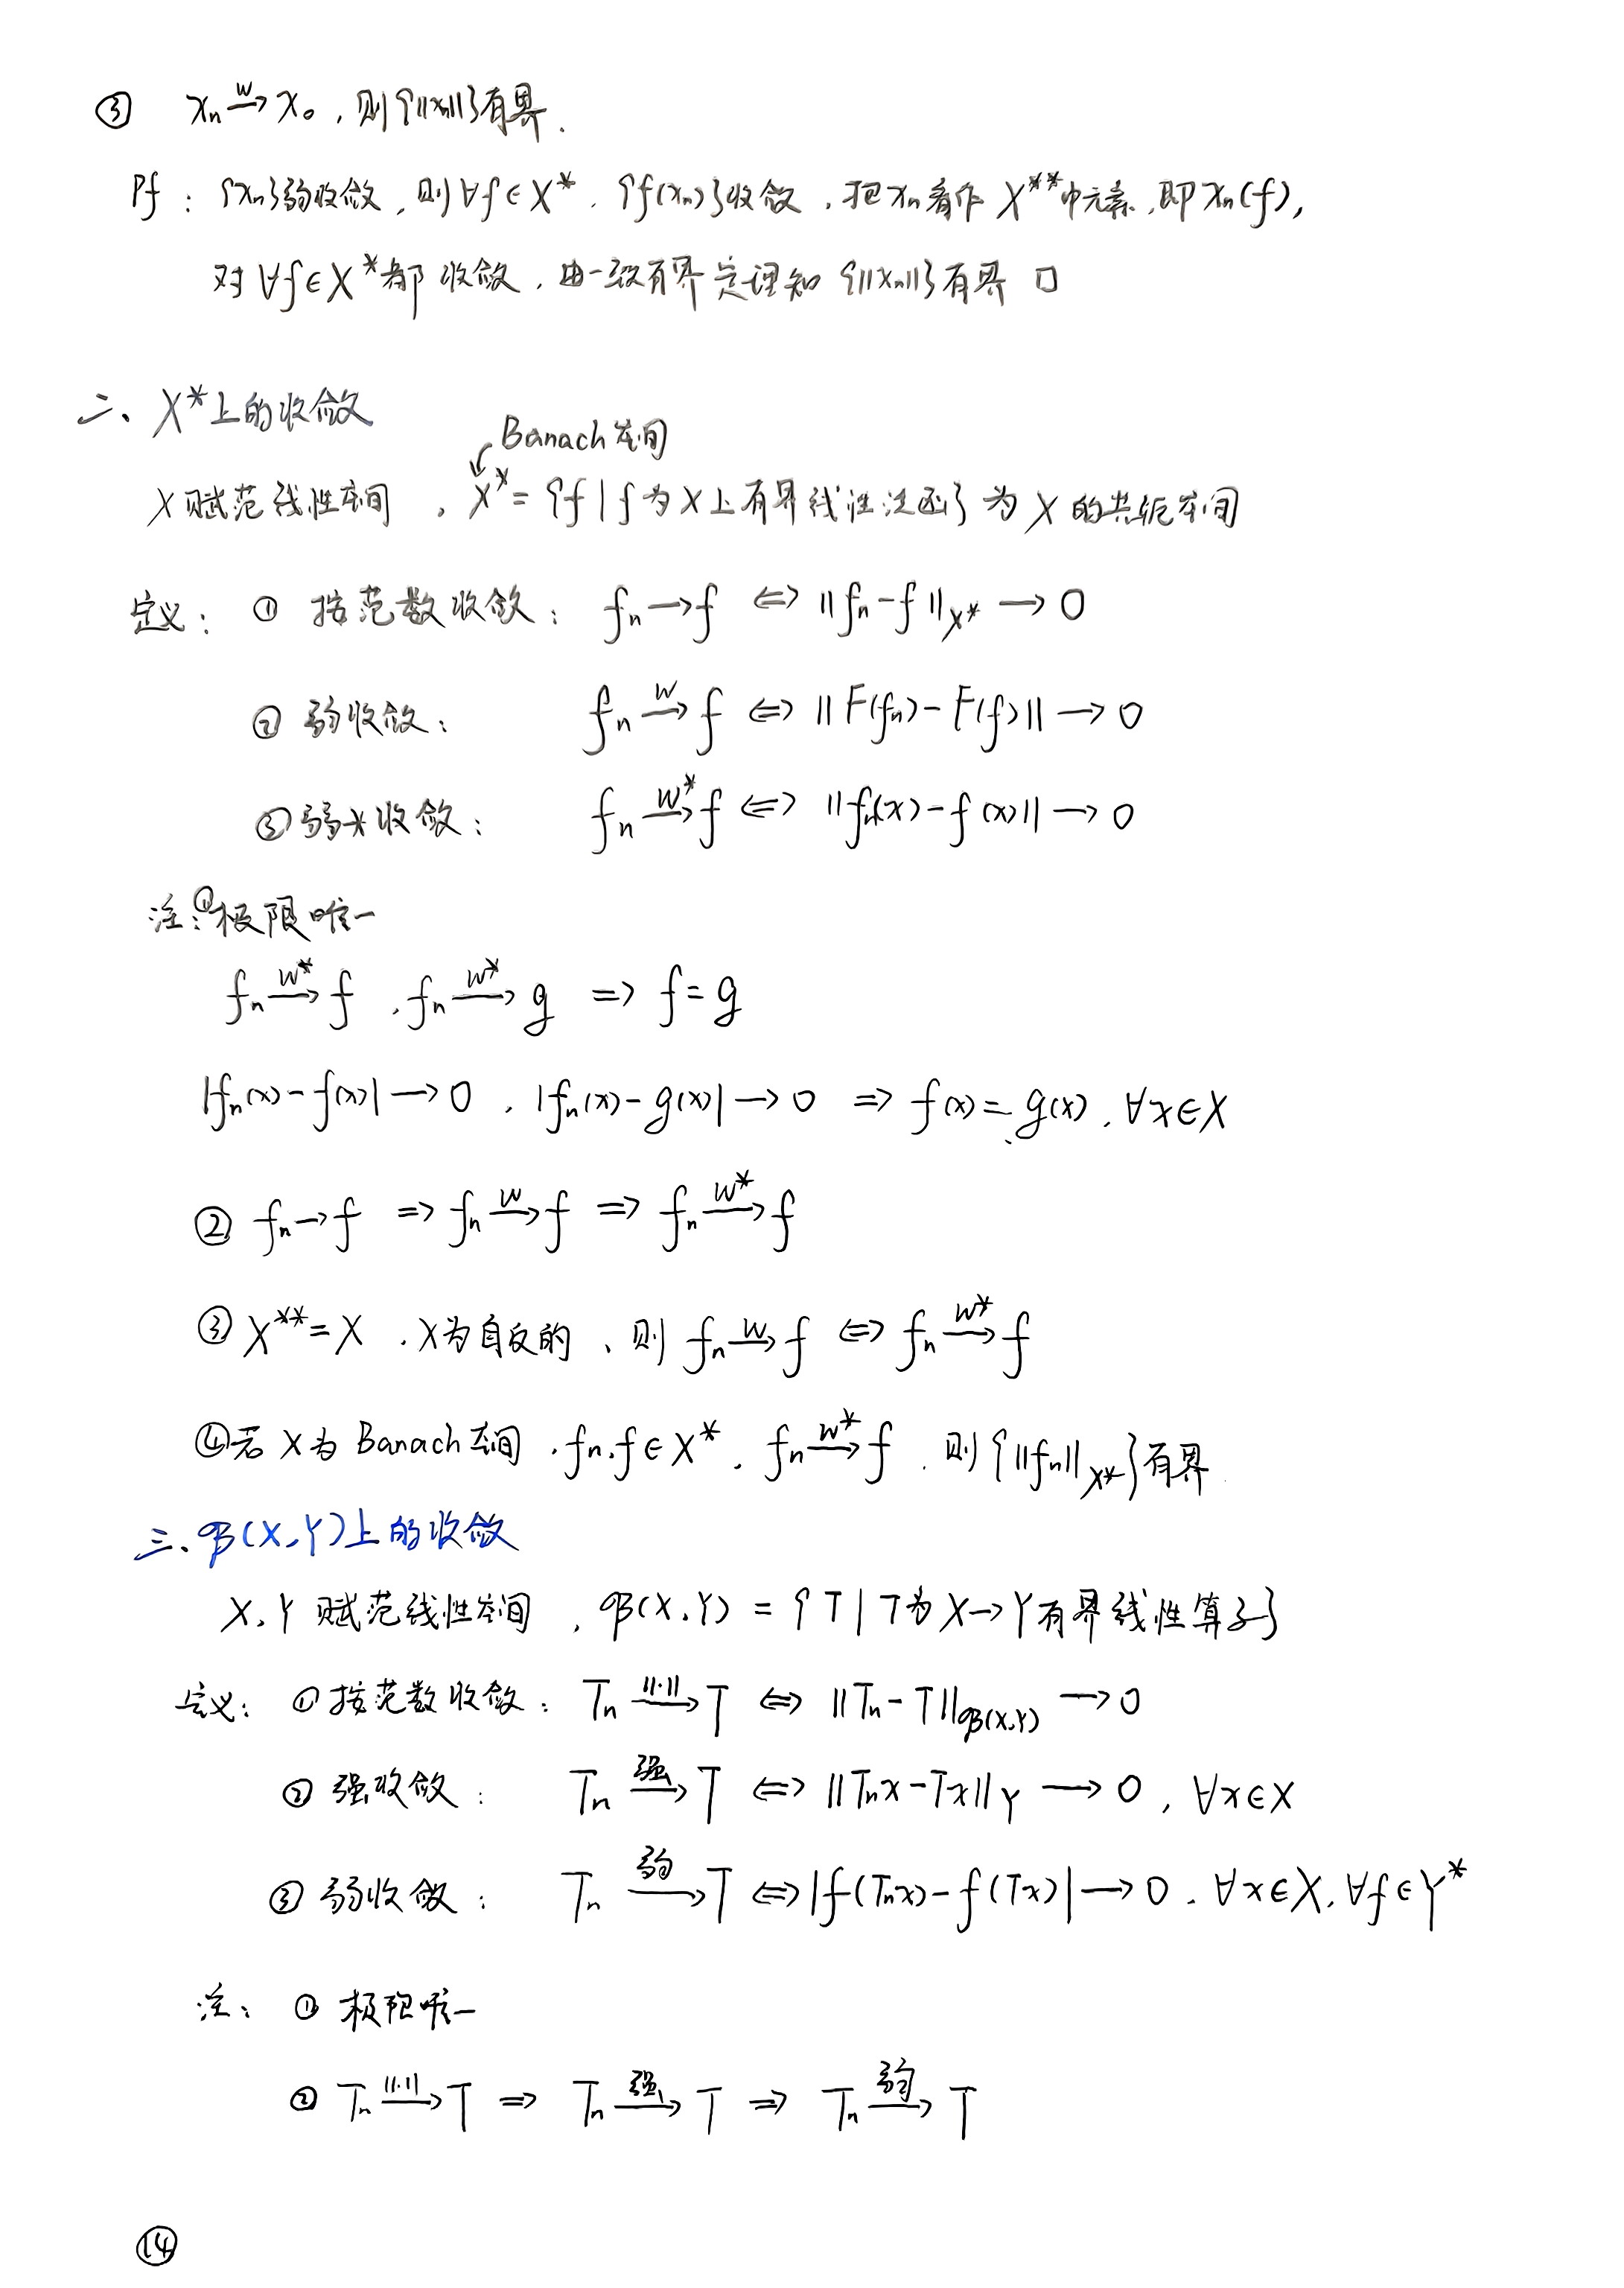 ③ xₙ —w→ x₀，则{‖xₙ‖}有界.
Pf：{xₙ}弱收敛，则∀f∈X*，{f(xₙ)}收敛，把xₙ看作X**中元素，即xₙ(f)，
对∀f∈X*都收敛，由一致有界定理知{‖xₙ‖}有界 □
二、X*上的收敛
Banach空间
X赋范线性空间，X*={f|f为X上有界线性泛函}为X的共轭空间
定义：① 按范数收敛：fₙ→f ⇔ ‖fₙ-f‖_X* → 0
② 弱收敛：fₙ —w→ f ⇔ ‖F(fₙ)-F(f)‖ → 0
③ 弱*收敛：fₙ —w*→ f ⇔ ‖fₙ(x)-f(x)‖ → 0
注：①极限唯一
fₙ —w*→ f，fₙ —w*→ g ⇒ f=g
|fₙ(x)-f(x)|→0，|fₙ(x)-g(x)|→0 ⇒ f(x)=g(x)，∀x∈X
② fₙ→f ⇒ fₙ —w→ f ⇒ fₙ —w*→ f
③ X**=X，X为自反的、则 fₙ —w→ f ⇔ fₙ —w*→ f
④若X为Banach空间，fₙ,f∈X*，fₙ —w*→ f，则{‖fₙ‖_X*}有界
三、𝓑(X,Y)上的收敛
X,Y赋范线性空间，𝓑(X,Y)={T|T为X→Y有界线性算子}
定义：① 按范数收敛：Tₙ —‖·‖→ T ⇔ ‖Tₙ-T‖_𝓑(X,Y) → 0
② 强收敛：Tₙ —强→ T ⇔ ‖Tₙx-Tx‖_Y → 0，∀x∈X
③ 弱收敛：Tₙ —弱→ T ⇔ |f(Tₙx)-f(Tx)|→0，∀x∈X，∀f∈Y*
注：① 极限唯一
② Tₙ —‖·‖→ T ⇒ Tₙ —强→ T ⇒ Tₙ —弱→ T
⑭